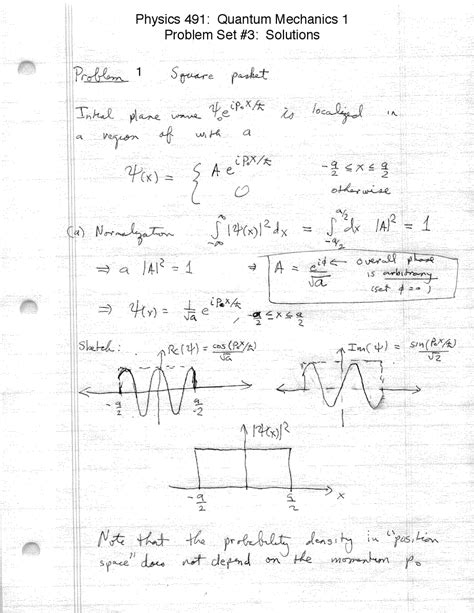 Physics 491: Quantum Mechanics 1
Problem Set #3: Solutions
Problem 1 Square packet
Initial plane wave ψ₀e^{ip₀x/ħ} is localized in
a region of with a
ψ(x) = { A e^{ip₀x/ħ} -a/2 ≤ x ≤ a/2
0 otherwise
(a) Normalization ∫_{-∞}^{∞} |ψ(x)|² dx = ∫_{-a/2}^{a/2} dx |A|² = 1
⇒ a |A|² = 1 ⇒ A = e^{iφ}/√a ← overall phase
is arbitrary
(set φ=0)
⇒ ψ(x) = 1/√a e^{ip₀x/ħ}, -a/2 ≤ x ≤ a/2
Sketch: Re(ψ) = cos(p₀x/ħ)/√a Im(ψ) = sin(p₀x/ħ)/√a
-a/2 a/2 -a/2 a/2
|ψ(x)|²
-a/2 a/2 x
Note that the probability density in "position
space" does not depend on the momentum p₀